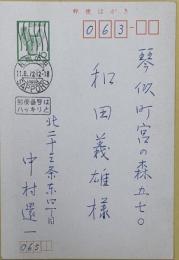 郵便はがき
063
琴似町宮の森五七〇
和田義雄様
SAPPORO
郵便番号は
ハッキリと
北二十三条東四丁目
中村還一
065